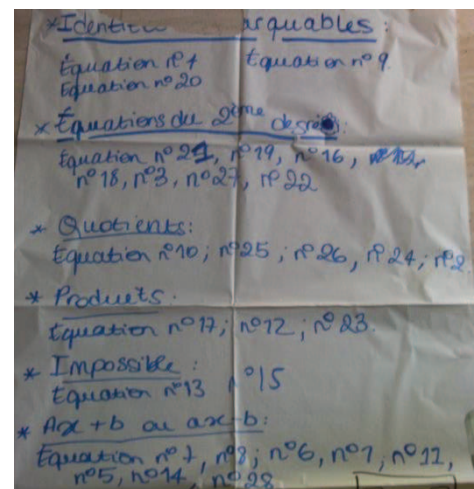 * Identi arquables :
Équation n° Équation n° 9.
Équation n° 20
* Équations du 2ème degré :
Équation n° 21, n° 19, n° 16,
n° 18, n° 3, n° 27, n° 22
* Quotients :
Équation n° 10 ; n° 25 ; n° 26, n° 24 ; n° 2
* Produits :
Équation n° 17 ; n° 12 ; n° 23.
* Impossible :
Équation n° 13 n° 15
* Ax + b ou ax - b :
Équation n° n° 8 ; n° 6, n° n° 11,
n° 5, n° 14, n° 28